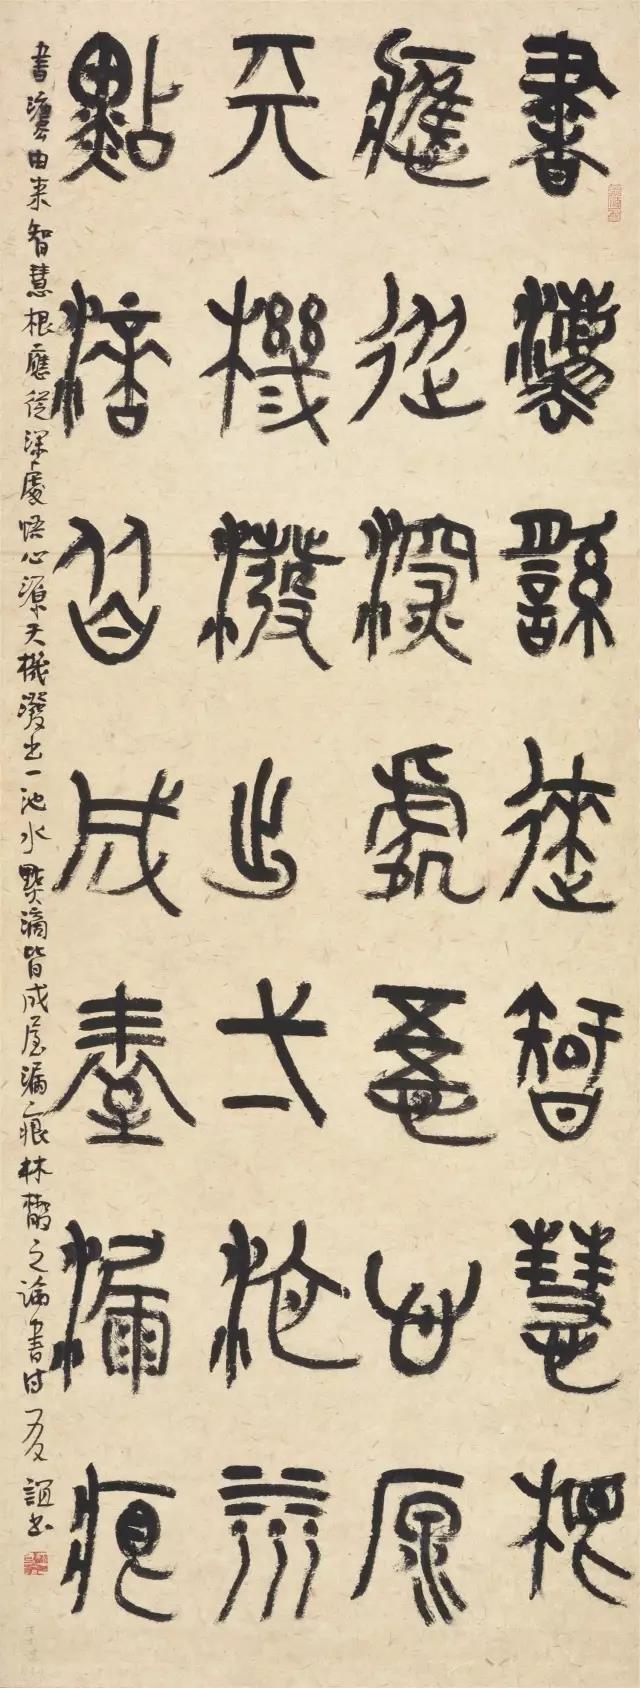 書灋繇來智慧根
應從深處悟心原
天機潑出一池水
點滴皆成屋漏痕
書灋由来智慧根應從深處悟心源天機潑出一池水點滴皆成屋漏痕林散之論書诗 誼书